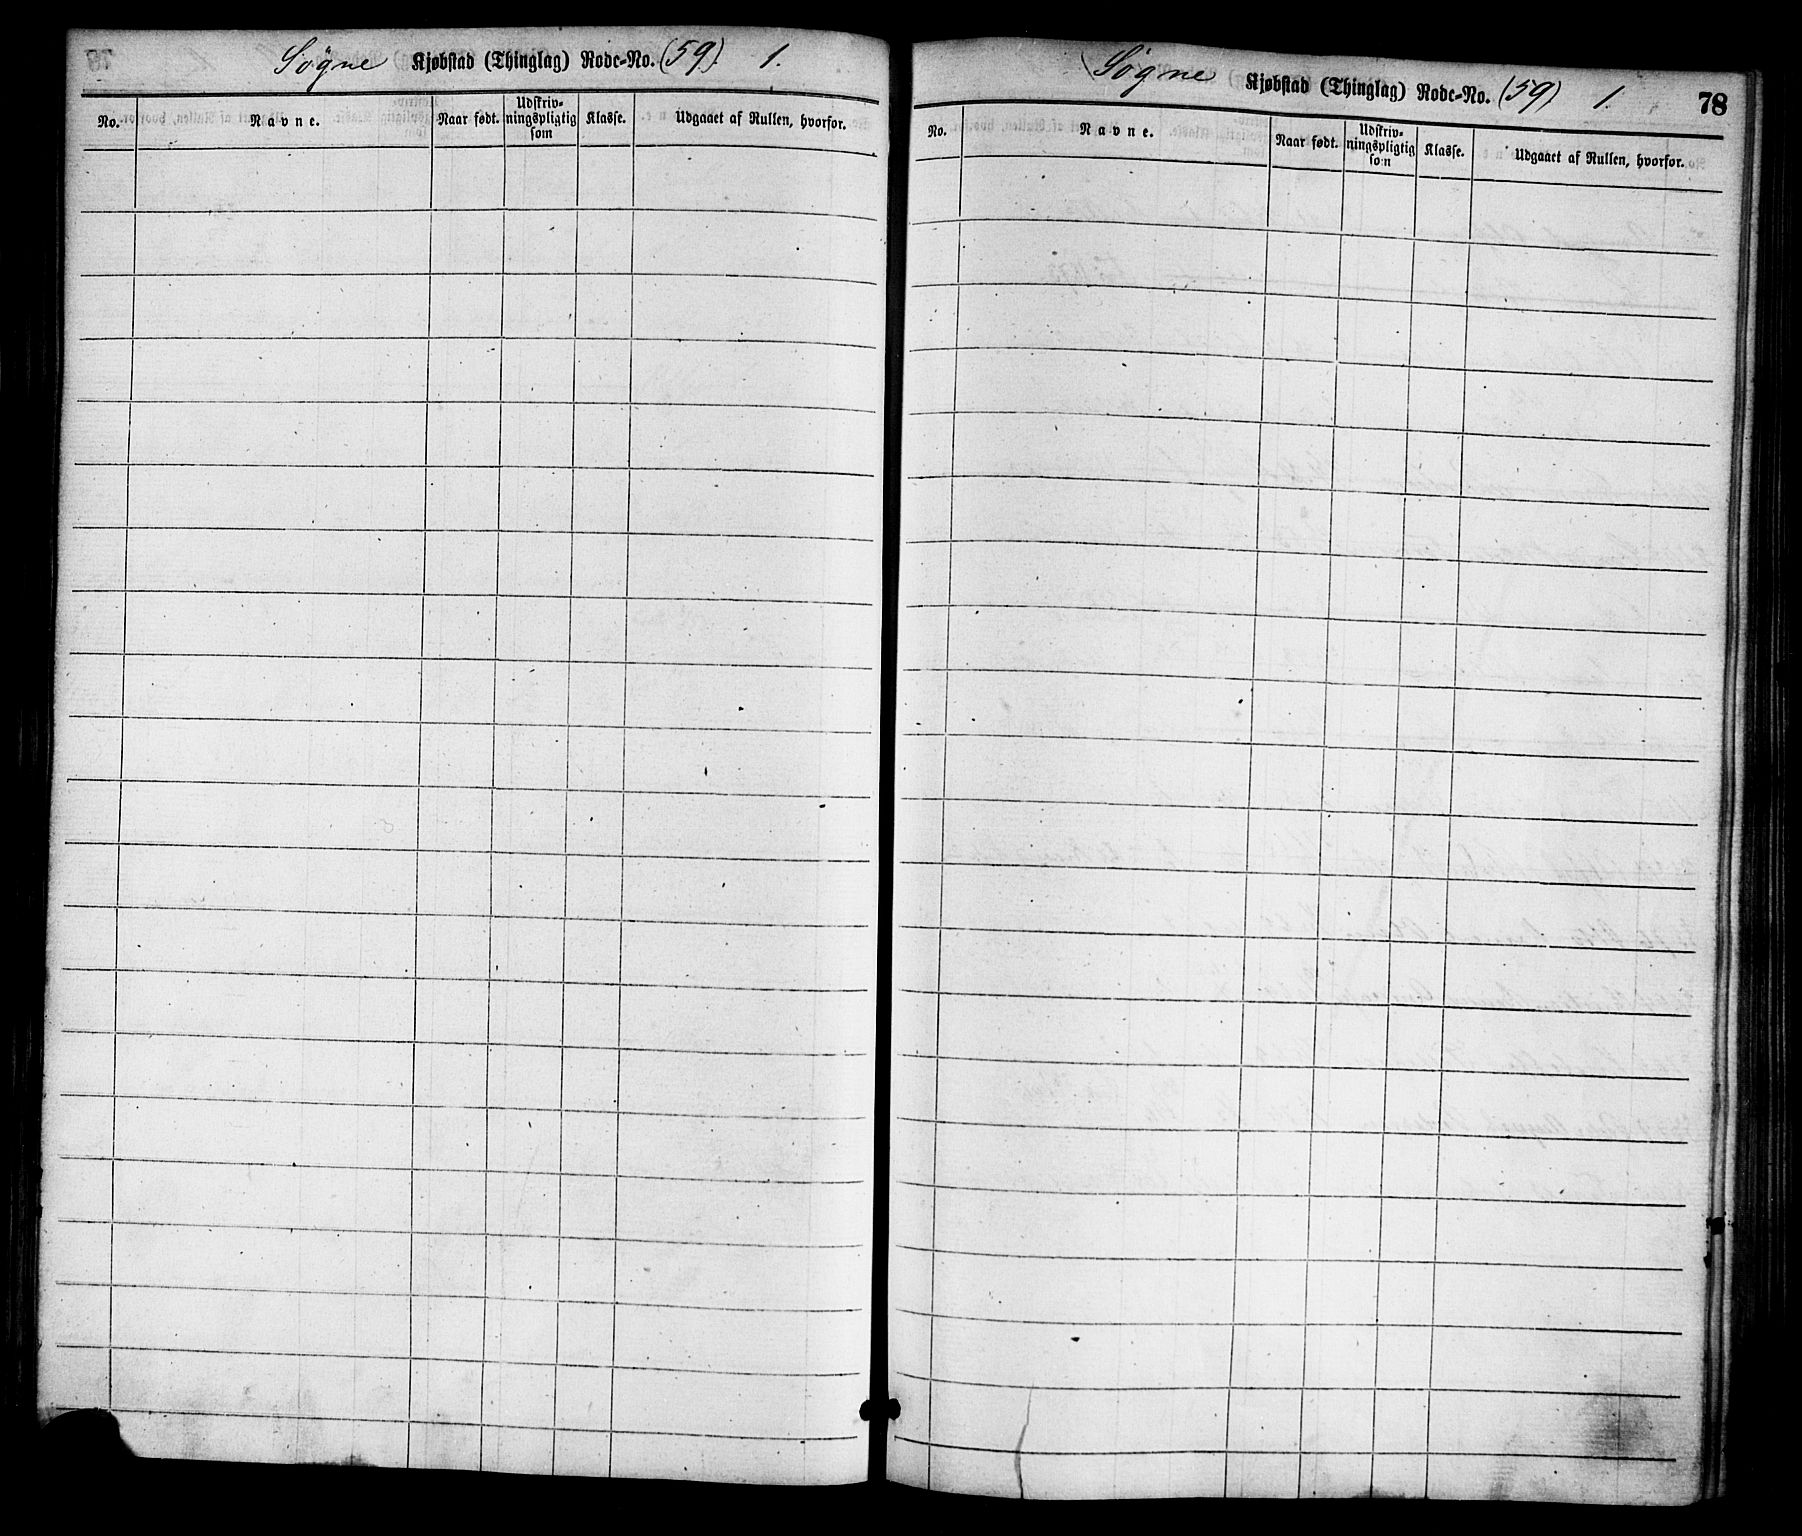 Søgne Kjøbstad (Thinglag) Rode-No. (59). 1.
No. Navne. Naar født. Udskriv-
ningspligtig
som Klasse. Udgaaet af Rullen, hvorfor.
Søgne Kjøbstad (Thinglag) Rode-No. (59) 1. 78
No. Navne. Naar født. Udskriv-
ningspligtig
som Klasse. Udgaaet af Rullen, hvorfor.